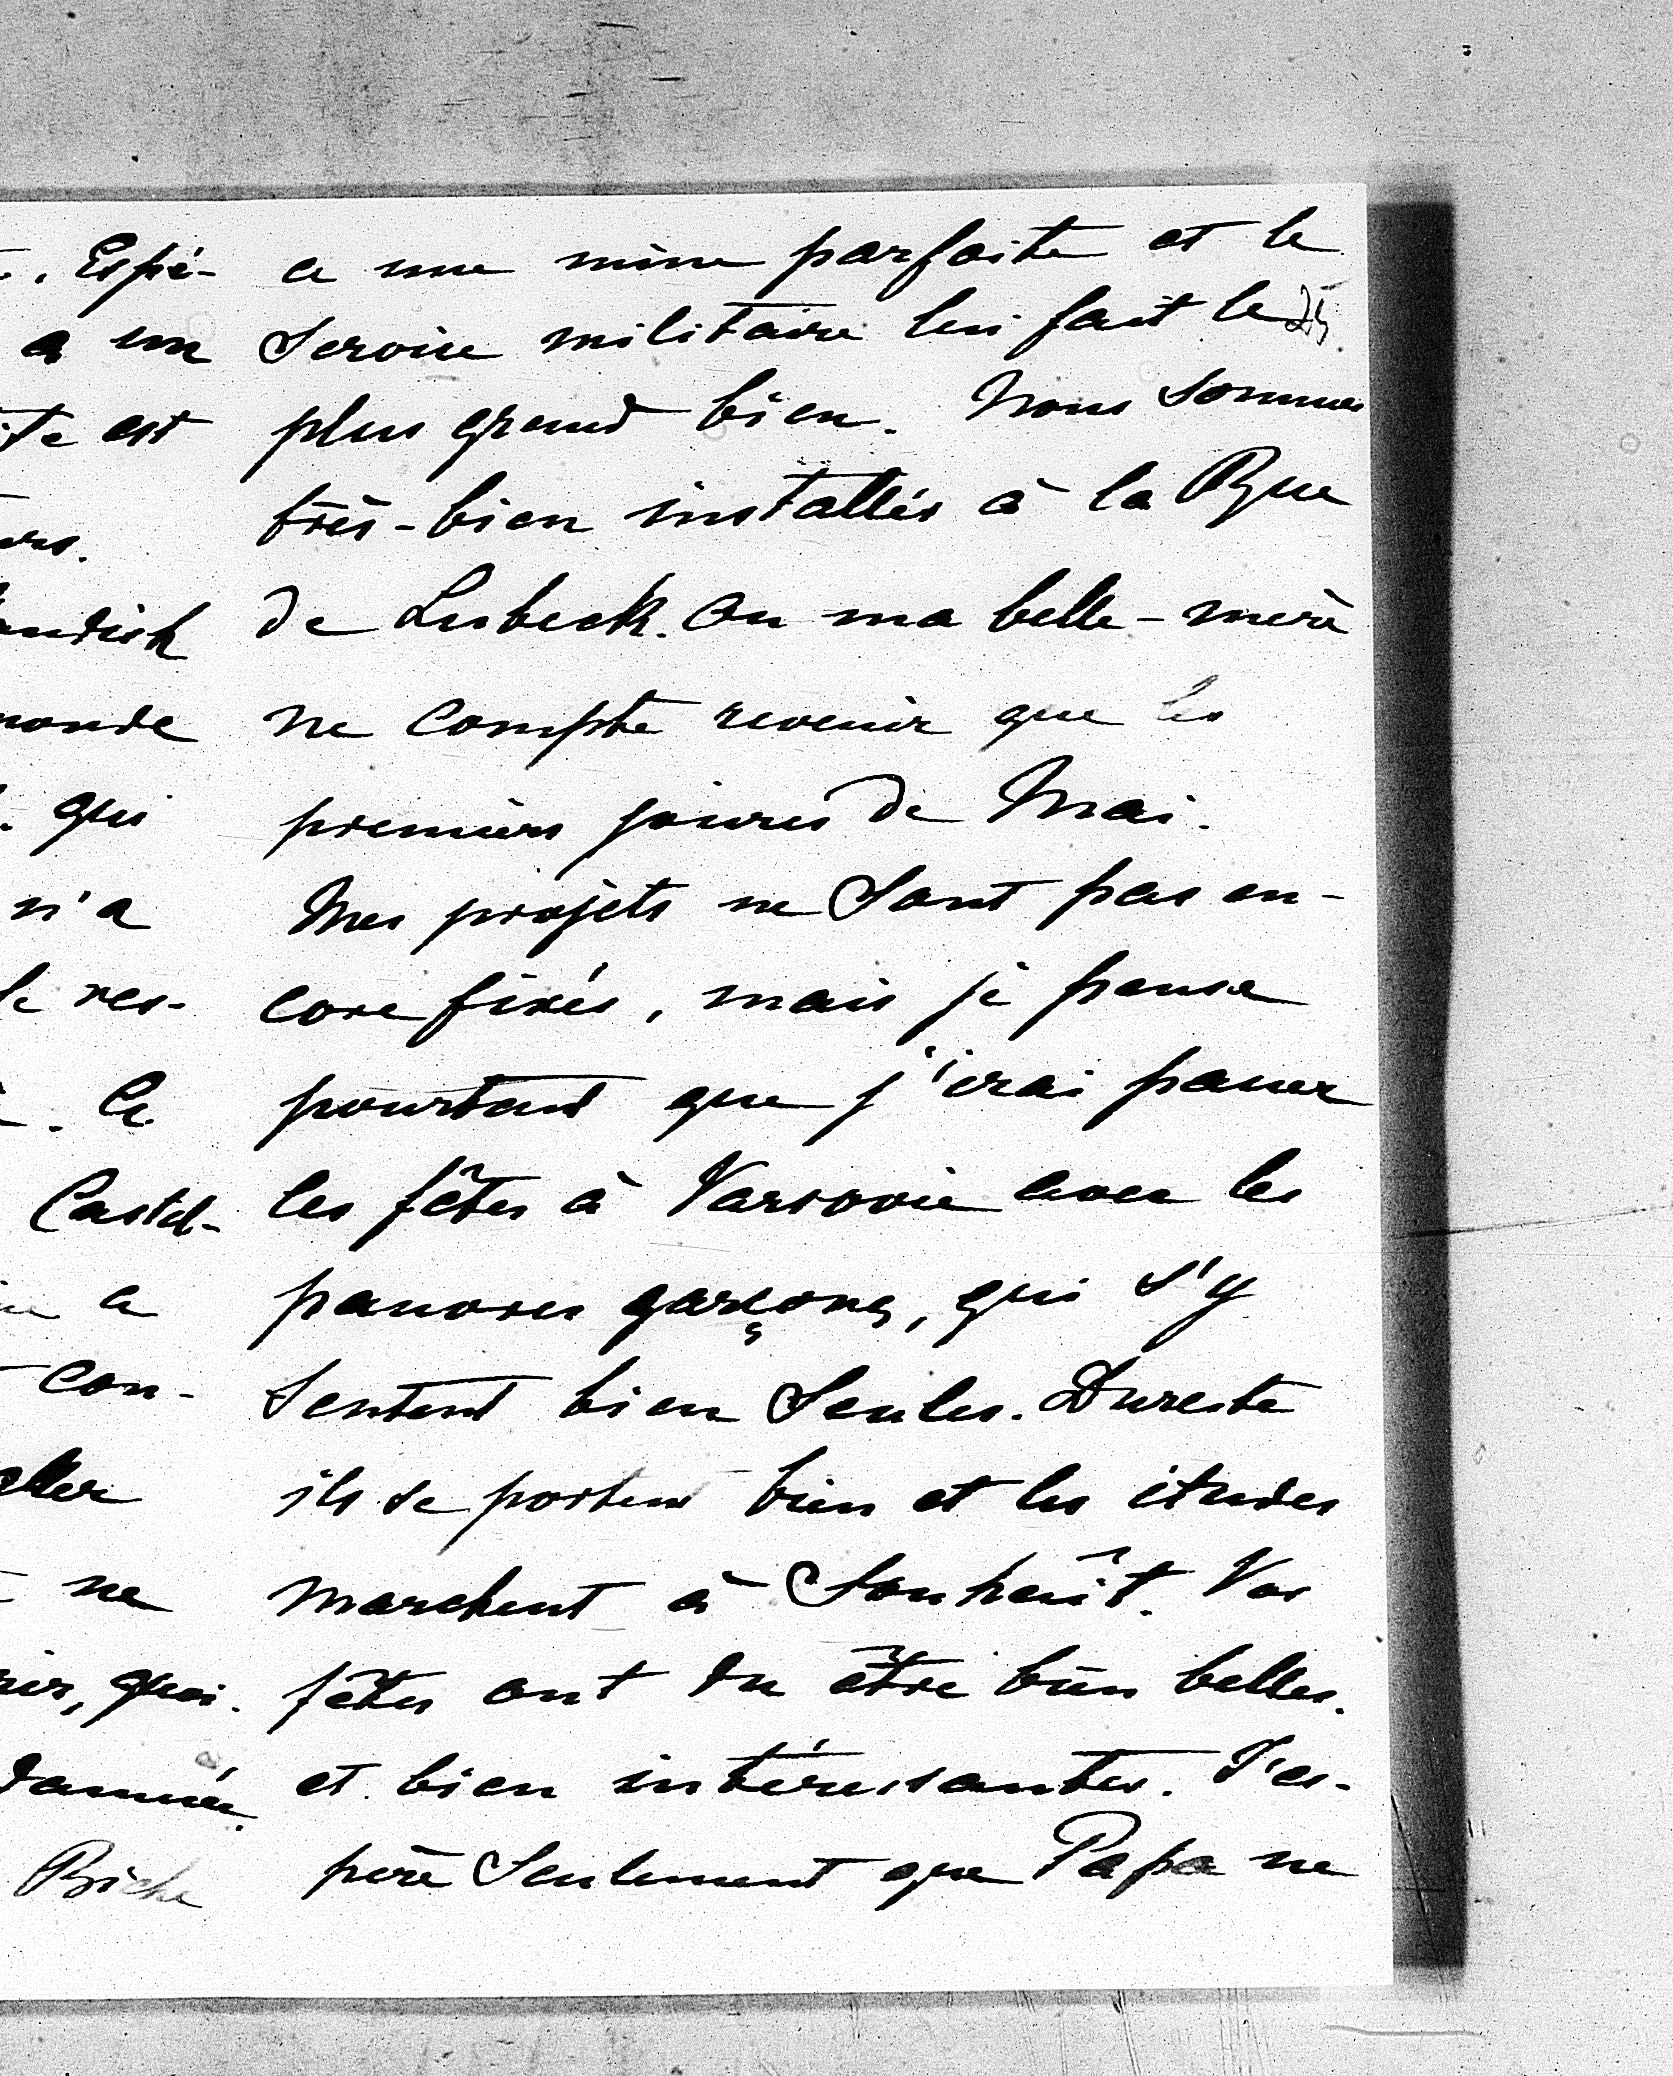 . Espé-
a un
est
andish
monde
. qui
n'a
le res-
. Ce
Castel-
a
con-
aller
ne
, quoi-
Biche
a une mine parfaite et le
25
service militaire lui fait le
plus grand bien. Nous sommes
très-bien installés à la Rue
de Lubeck. Ou ma belle-mère
ne compte revenir que les
premiers jours de Mai.
Mes projets ne sont pas en-
core fixés, mais je pense
pourtant que j'irai passer
les fêtes à Varsovie avec les
pauvres garçons, qui s'y
sentent bien seules. Dureste
ils se portent bien et les études
marchent à souhaît. Vos
fêtes ont du être bien belles.
et bien intéressantes. J'es-
père seulement que Papa ne